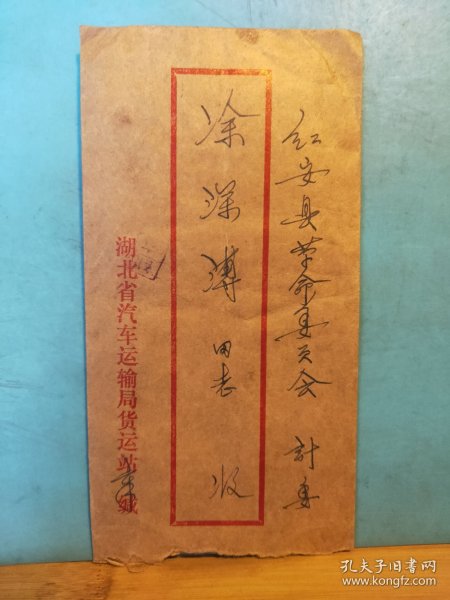 红安县革命委员会 計委
涂深溥 同志 收
湖北省汽车运输局货运站缄
孔夫子旧书网
www.kongfz.com